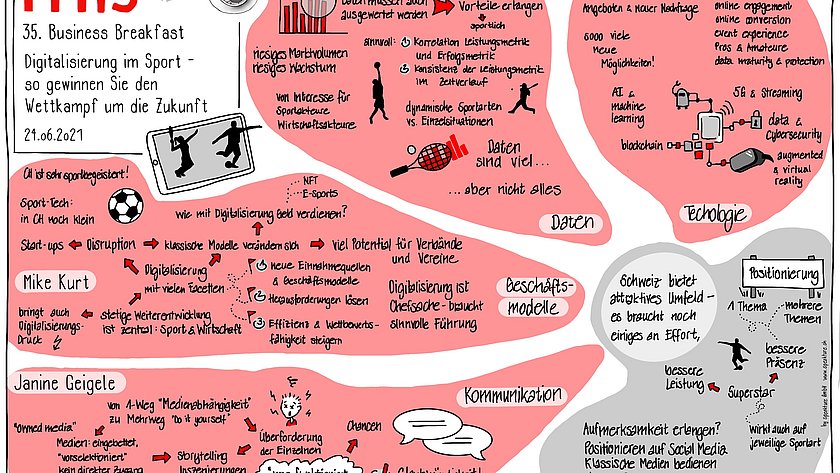 35. Business Breakfast
Digitalisierung im Sport –
so gewinnen Sie den
Wettkampf um die Zukunft
29.06.2021
ausgewertet werden
Vorteile erlangen
sportlich
riesiges Marktvolumen
riesiges Wachstum
sinnvoll:
Korrelation Leistungsmetrik
und Erfolgsmetrik
Konsistenz der Leistungsmetrik
im Zeitverlauf
von Interesse für
Sportakteure
Wirtschaftsakteure
dynamische Sportarten
vs. Einzelsituationen
Daten
sind viel...
...aber nicht alles
Daten
Angeboten & neuer Nachfrage
online engagement
online conversion
event experience
Pros & Amateure
data maturity & protection
6000 viele
neue
Möglichkeiten!
AI &
machine
learning
5G & Streaming
data &
Cybersecurity
blockchain
augmented
& virtual
reality
Techologie
CH ist sehr sportbegeistert!
Sport-Tech:
in CH noch klein
NFT
E-Sports
Wie mit Digitalisierung Geld verdienen?
Start-ups
Disruption
klassische Modelle verändern sich
viel Potential für Verbände
und Vereine
Mike Kurt
Digitalisierung
mit vielen Facetten
1
neue Einnahmequellen
& Geschäftsmodelle
2
Herausforderungen lösen
3
Effizienz & Wettbewerbs-
fähigkeit steigern
Digitalisierung ist
Chefsache – braucht
sinnvolle Führung
Geschäfts-
modelle
bringt auch
Digitalisierungs-
Druck
stetige Weiterentwicklung
ist zentral: Sport & Wirtschaft
Schweiz bietet
attraktives Umfeld –
es braucht noch
einiges an Effort,
Positionierung
1 Thema
mehrere
Themen
bessere
Präsenz
bessere
Leistung
Superstar
wirkt auch auf
jeweilige Sportart
Aufmerksamkeit erlangen?
Positionieren auf Social Media
Klassische Medien bedienen
Janine Geigele
Kommunikation
von 1-Weg "Medienabhängigkeit"
zu Mehrweg "Do it yourself"
"Owned media"
Medien: eingebettet,
"vorselektioniert"
kein direkter Zugang
Storytelling
Inszenierungen
Überforderung
der Einzelnen
Chancen